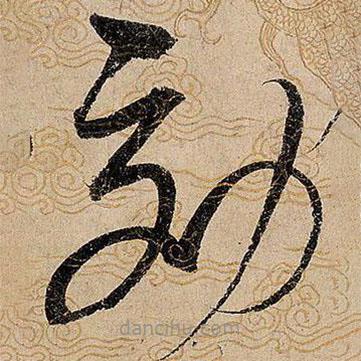 効
dancihu.com